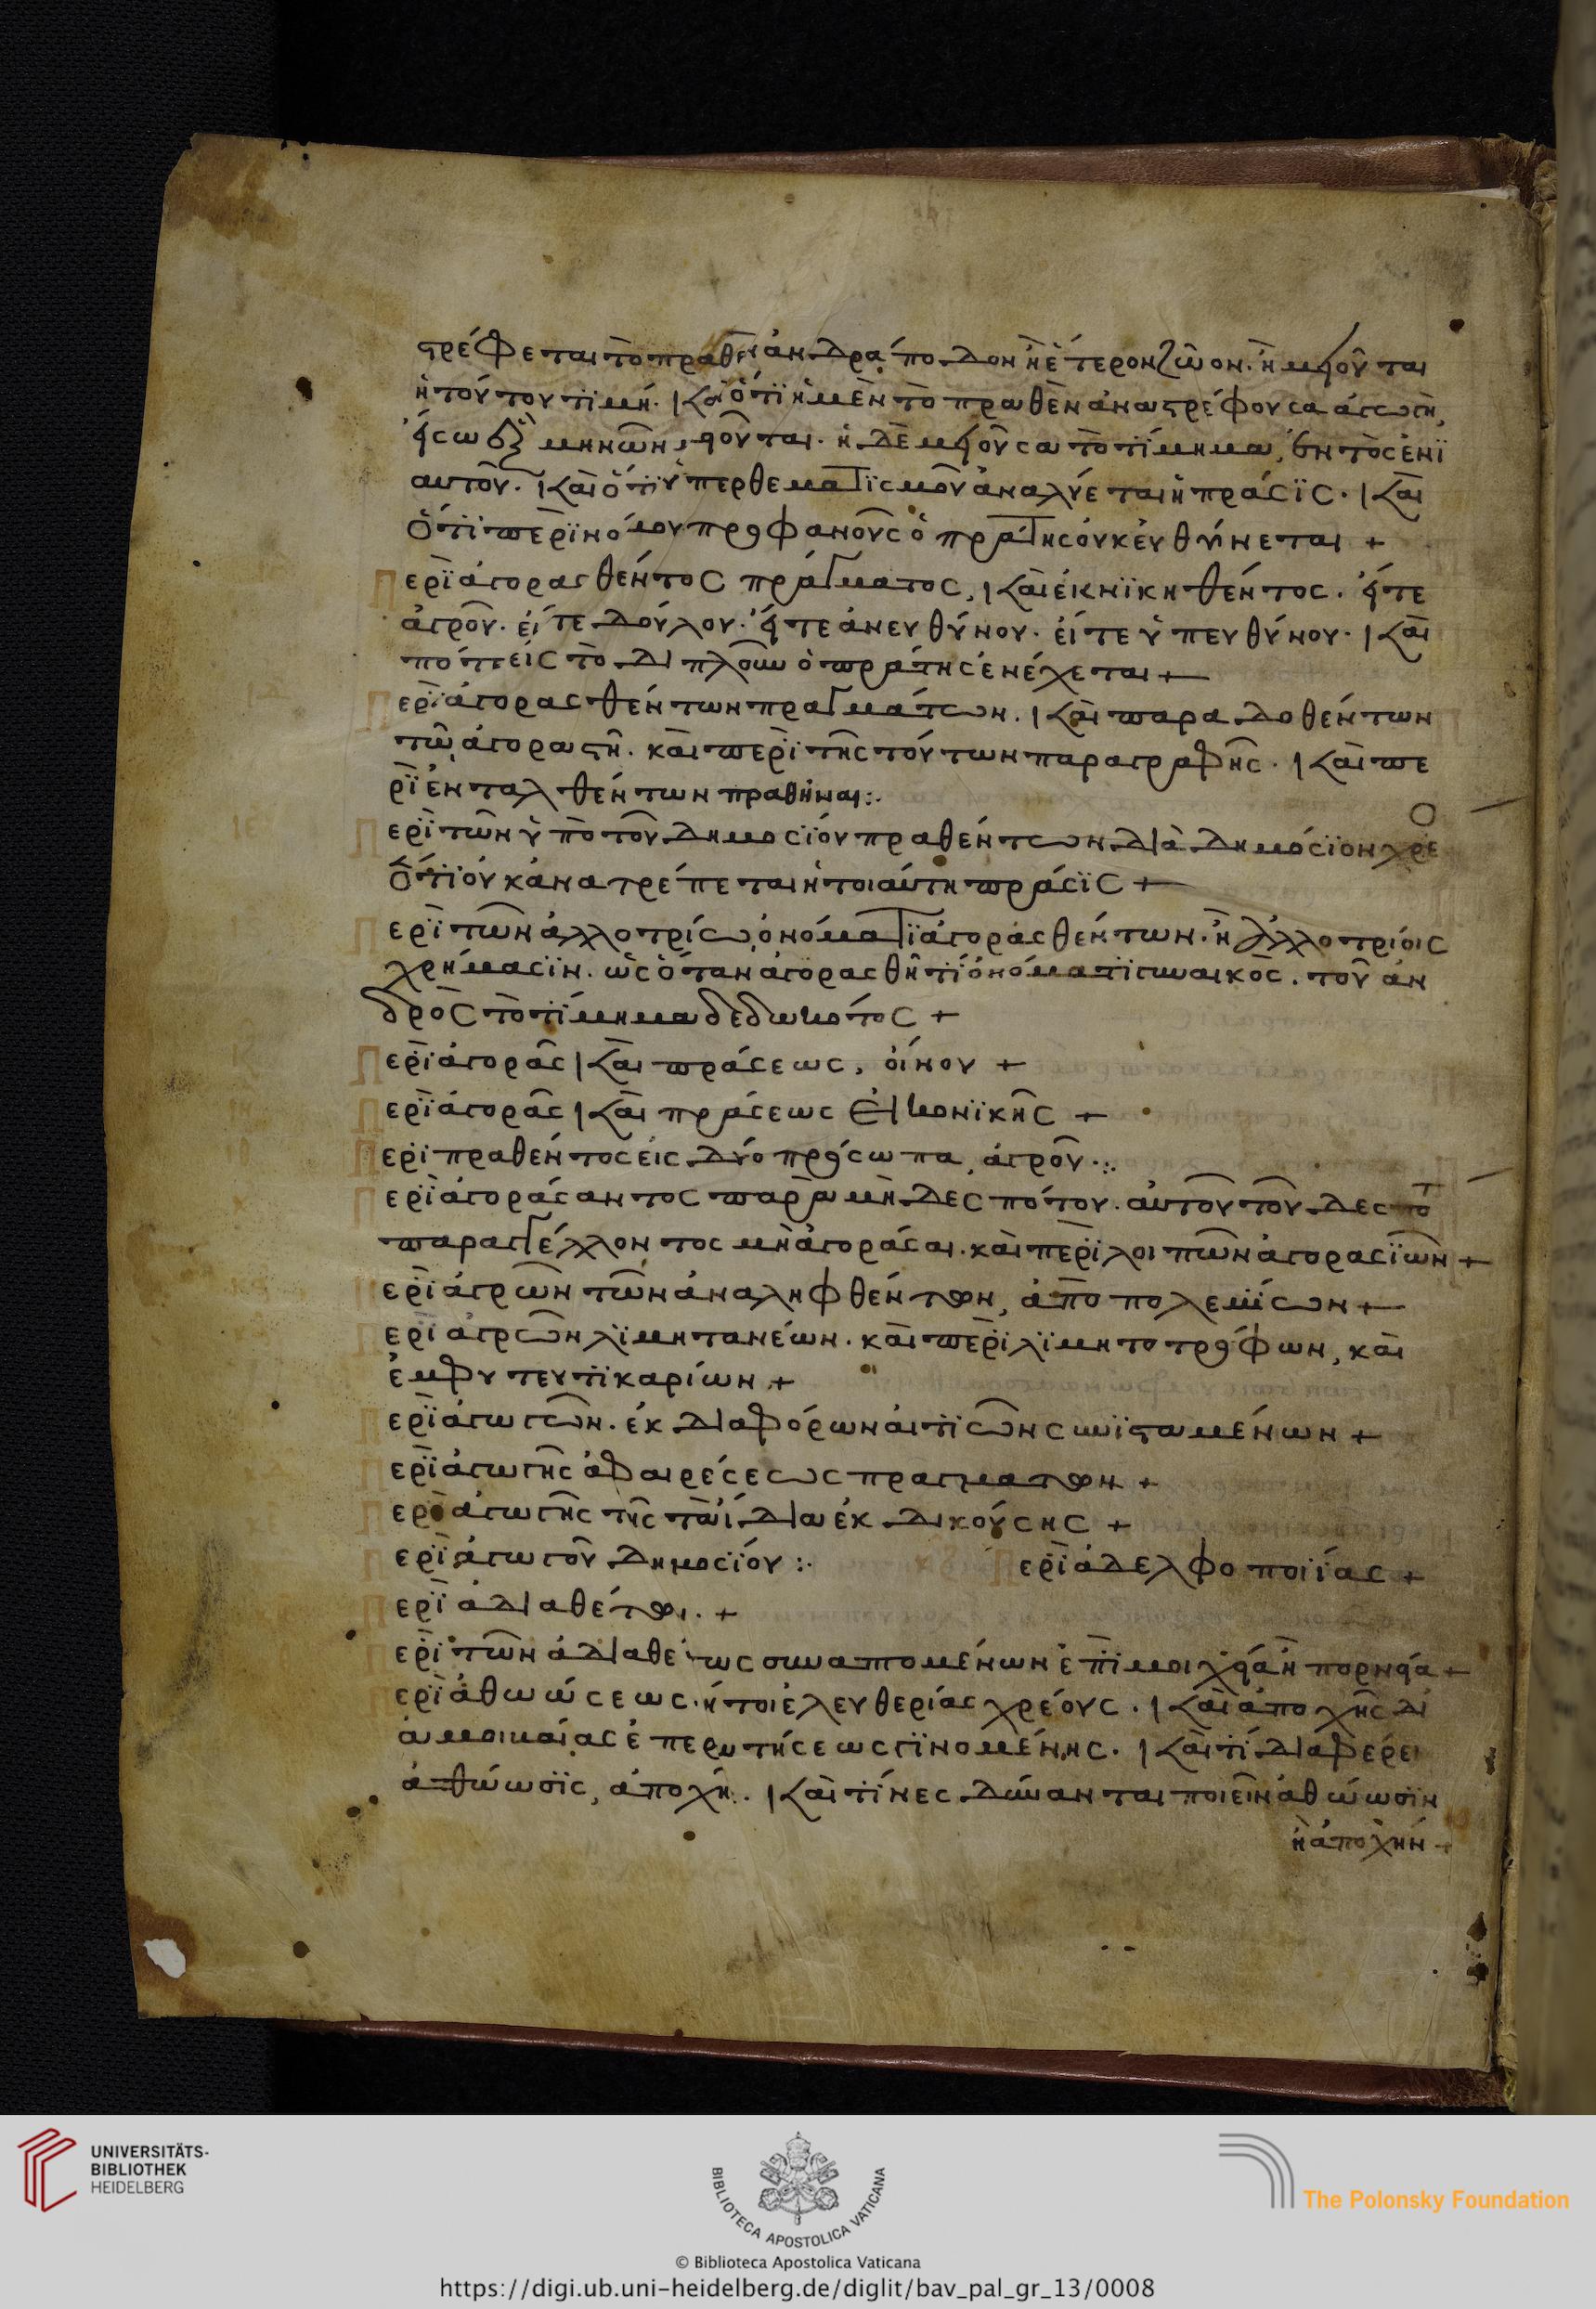 στρέφεται τὸ πραθὲν ἀνδράποδον ἢ ἕτερον ζῶον. ἢ μειοῦται
ἡ τούτου τιμή. καὶ ὅτι ἡ μὲν τὸ πραθὲν ἀναστρέφουσα ἀγωγὴ,
εἴσω μηνῶν κινοῦνται. ἡ δὲ μειοῦσα τὸ τίμημα, ἐντὸς ἐνι
αυτοῦ. καὶ ὅτι ὑπερθεματισμοῦ ἀναλύεται ἡ πράσις. καὶ
ὅτι περὶ νόμου προφανοῦς ὁ πράτης οὐκ εὐθύνεται +
Περὶ ἀγορασθέντος πράγματος, καὶ ἐκνικηθέντος. εἴτε
ἀγροῦ. εἴτε δούλου. εἴτε ἀνευθύνου. εἴτε ὑπευθύνου. καὶ
πότε εἰς τὸ διπλοῦν ὁ πράτης ἐνέχεται +
Περὶ ἀγορασθέντων πραγμάτων. καὶ παραδοθέντων
τῶ ἀγοραστῆ. καὶ περὶ τῆς τούτων παραγραφῆς. καὶ πε
ρὶ ἐνταλθέντων πραθῆναι :.
Περὶ τῶν ὑπὸ τοῦ δημοσίου πραθέντων διὰ δημόσιον χρέο
ὅτι οὐκ ἀνατρέπεται ἡ τοιαύτη πράσις +
Περὶ τῶν ἀλλοτρίω ὀνόματι ἀγορασθέντων. ἢ ἀλλοτρίοις
χρήμασιν. ὡς ὅταν ἀγορασθῆ τί ὀνόματι γυναικὸς. τοῦ ἀν
δρὸς τὸ τίμημα δεδωκότος +
Περὶ ἀγορᾶς καὶ πράσεως, οἴνου +
Περὶ ἀγορᾶς καὶ πράσεως εἰκονικῆς +
Περὶ πραθέντος εἰς δύο πρόσωπα, ἀγροῦ .:.
Περὶ ἀγοράσαντος παρὰ μὴ δεσπότου. αὐτοῦ τοῦ δεσπότ
παραγγέλλοντος μὴ ἀγοράσαι. καὶ περὶ λοιπῶν ἀγορασιῶν +
Περὶ ἀγρῶν τῶν ἀναληφθέντων, ἀπὸ πολεμίων +
Περὶ ἀγρῶν λιμητανέων. καὶ περὶ λιμητοτρόφων, καὶ
ἐμφυτευτικαρίων +
Περὶ ἀγωγῶν. ἐκ διαφόρων αἰτιῶν συνισταμένων +
Περὶ ἀγωγῆς ἀφαιρέσεως πραγμάτων +
Περὶ ἀγωγῆς τῆς τὰ ἴδια ἐκδικούσης +
Περὶ ἀγωγοῦ δημοσίου :. Περὶ ἀδελφοποιίας +
Περὶ ἀδιαθέτων. +
Περὶ τῶν ἀδιαθέτως συναπτομένων ἐπὶ μοιχεία ἢ πορνεία +
Περὶ ἀθωώσεως. ἤτοι ἐλευθερίας χρέους. καὶ ἀποχῆς δι
ἀμοιβαίας ἐπερωτήσεως γινομένης. καὶ τί διαφέρει
ἀθώωσις, ἀποχή. καὶ τίνες δύνανται ποιεῖν ἀθώωσιν
ἢ ἀποχὴν +
UNIVERSITÄTS-
BIBLIOTHEK
HEIDELBERG
BIBLIOTECA APOSTOLICA VATICANA
The Polonsky Foundation
© Biblioteca Apostolica Vaticana
https://digi.ub.uni-heidelberg.de/diglit/bav_pal_gr_13/0008